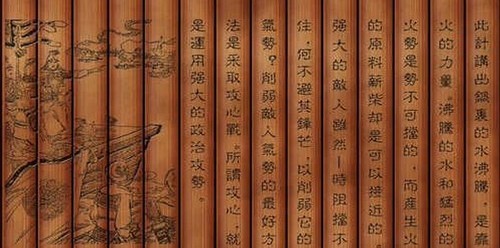 此計講出鍋裏的水沸騰，是靠
火的力量。沸騰的水和猛烈的
火勢是勢不可擋的，而産生火
的原料薪柴却是可以接近的。
强大的敵人雖然一時阻擋不
住，何不避其鋒芒，以削弱它的
氣勢？削弱敵人氣勢的最好方
法是采取攻心戰。所謂攻心，就
是運用强大的政治攻勢。